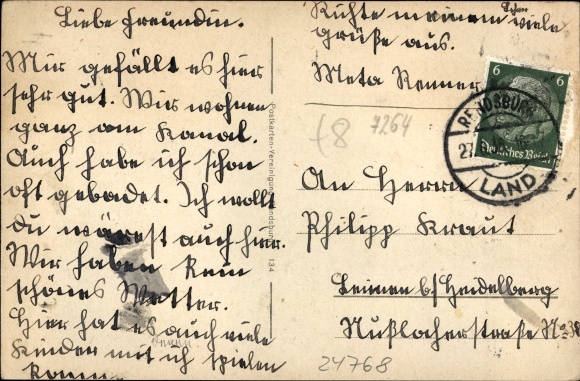 Liebe Freundin.
Mir gefällt es hier
sehr gut. Wir wohnen
ganz am Kanal.
Auch habe ich schon
oft gebadet. Ich wollt
du wärest auch hier.
Wir haben kein
schönes Wetter.
Hier hat es auch viele
Kinder mit ich spielen
kann.
Richte meinem viele
grüße aus.
Meta Renner
6 6
Deutsches Reich
RENDSBURG
27
LAND
f8 7264
An Herrn
Philipp Kraut
Leimen b/Heidelberg
Nußlocherstraße No 38
24768
Postkarten-Vereinigung Rendsburg 134